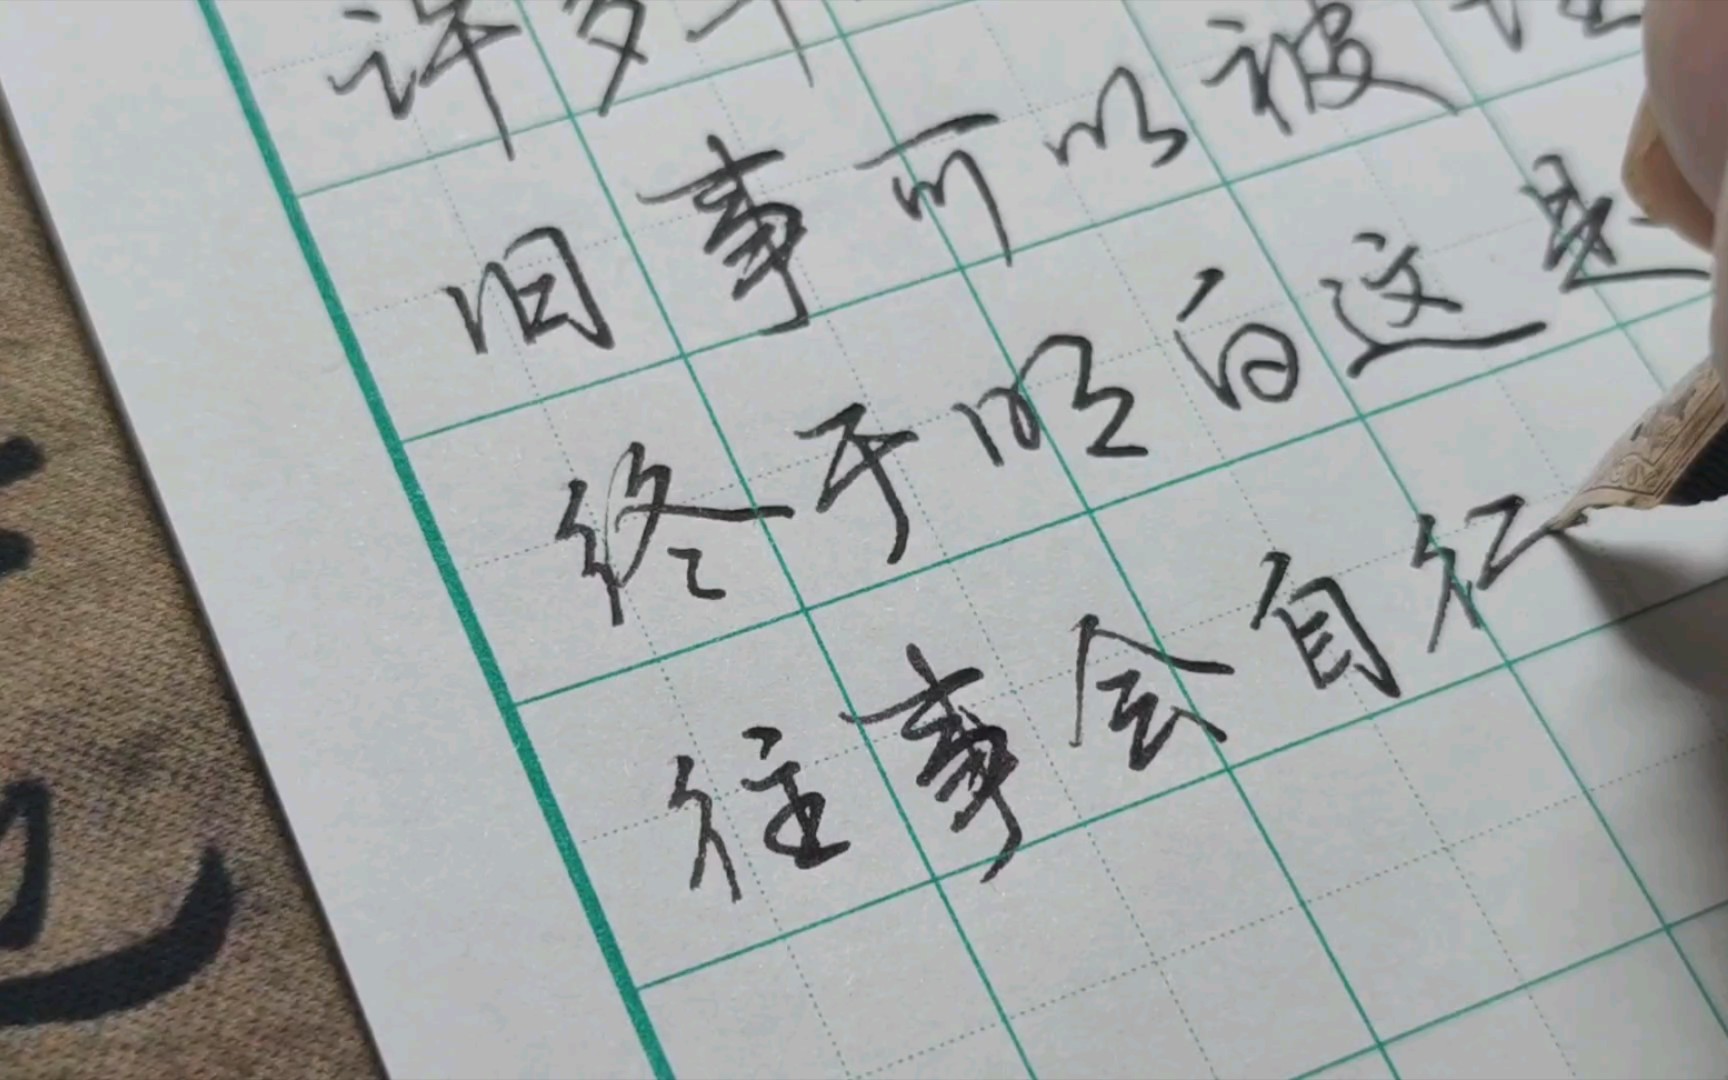 许多年
旧事可以被
终于明白这是
往事会自行